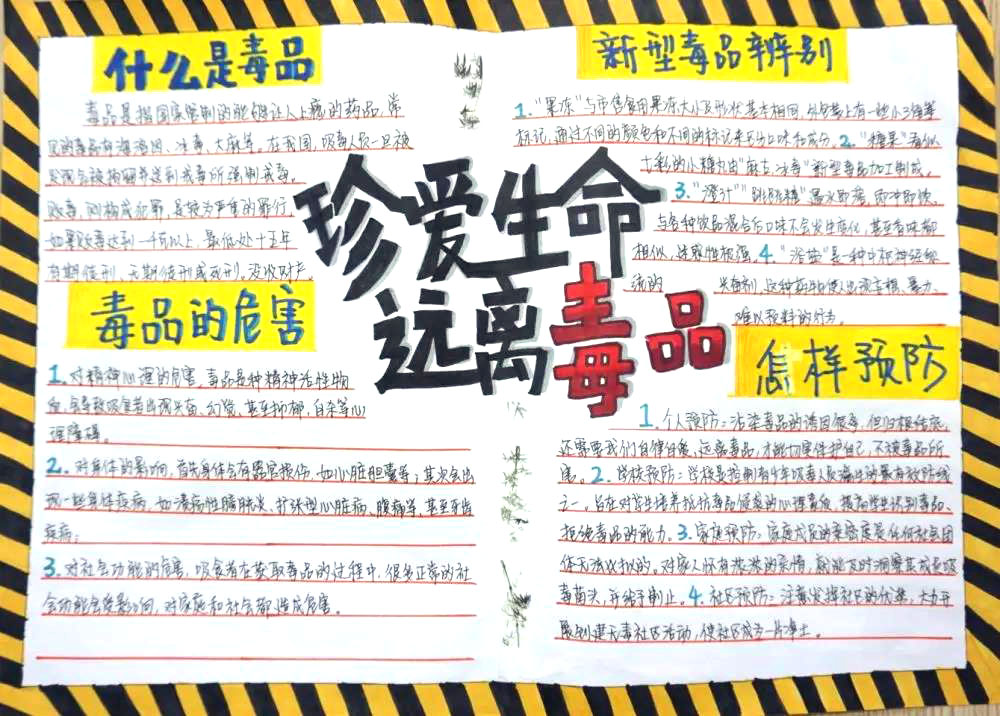 什么是毒品
毒品是指国家管制的能够让人上瘾的药品,常
见的毒品有海洛因、冰毒、大麻等。在我国,吸毒人员一旦被
发现会被拘留并送到戒毒所强制戒毒。
贩毒,则构成犯罪,是较为严重的罪行,
如果贩毒达到一千克以上,最低处十五年
有期徒刑、无期徒刑或死刑。没收财产。
毒品的危害
1.对精神心理的危害,毒品是种精神活性物
会导致吸食者出现兴奋、幻觉,甚至抑郁,自杀等心
理障碍。
2.对身体的影响,首先身体会有器官损伤,如心脏胆囊等;其次会出
现一些身性疾病,如溃疡性膀胱炎、扩张型心脏病、腹痛等,甚至牙齿
疾病;
3.对社会功能的危害,吸食者在获取毒品的过程中,很多正常的社
会功能会受影响,对家庭和社会都造成危害。
珍爱生命
远离毒品
新型毒品辨别
1."果冻"与市售食用果冻大小及形状基本相同,外包装上有一些小三角等
标记,通过不同的颜色和不同的标记来区分口味和成分。2."糖果"看似
七彩的小糖丸由"麻古、冰毒"新型毒品加工制成。
3."橙汁""跳跳糖"遇水即溶,即冲即饮,
与各种饮品混合后口味不会发生变化,甚至香味都
相似,迷惑性极强。4."浴盐"是一种中枢神经系
统的 兴奋剂,这种药物使人出现妄想、暴力、
难以预料的行为。
怎样预防
1.个人预防:沾染毒品的诱因很多,但归根结底,
还需要我们自律自爱,远离毒品,才能切实保护自己,不被毒品所
害。2.学校预防:学校是控制青年吸毒人员滋生的最有效防线
之一,旨在对学生培养抵抗毒品侵袭的心理素质,提高学生识别毒品、
拒绝毒品的能力。3.家庭预防:家庭成员的亲密度是任何社会团
体无法比拟的。对家人怀有浓浓的亲情,就能及时洞察其成长吸
毒苗头,并给予制止。4.社区预防:注意发挥社区的优势,大力开
展创建无毒社区活动,使社区成为一片净土。